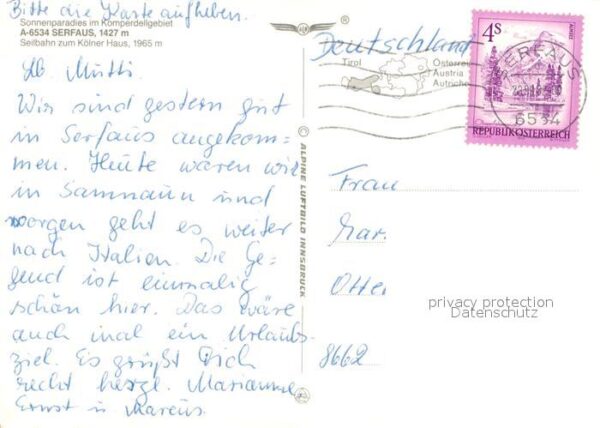 Bitte die Karte aufheben.
Sonnenparadies im Komperdellgebiet
A-6534 SERFAUS, 1427 m
Seilbahn zum Kölner Haus, 1965 m
Lb. Mutti.
Wir sind gestern gut
in Serfaus angekom-
men. Heute waren wir
in Samnaun und
morgen geht es weiter
nach Italien. Die Ge-
gend ist einmalig
schön hier. Das wäre
auch mal ein Urlaubs-
ziel. Es grüßt Dich
recht herzl. Marianne
Ernst u Marcus.
© ALPINE LUFTBILD INNSBRUCK
Deutschland
Tirol
Österrei
Austria
Autriche
4S
SERFAUS
6534
REPUBLIK ÖSTERREICH
Frau
Mar.
Otte
privacy protection
Datenschutz
8662